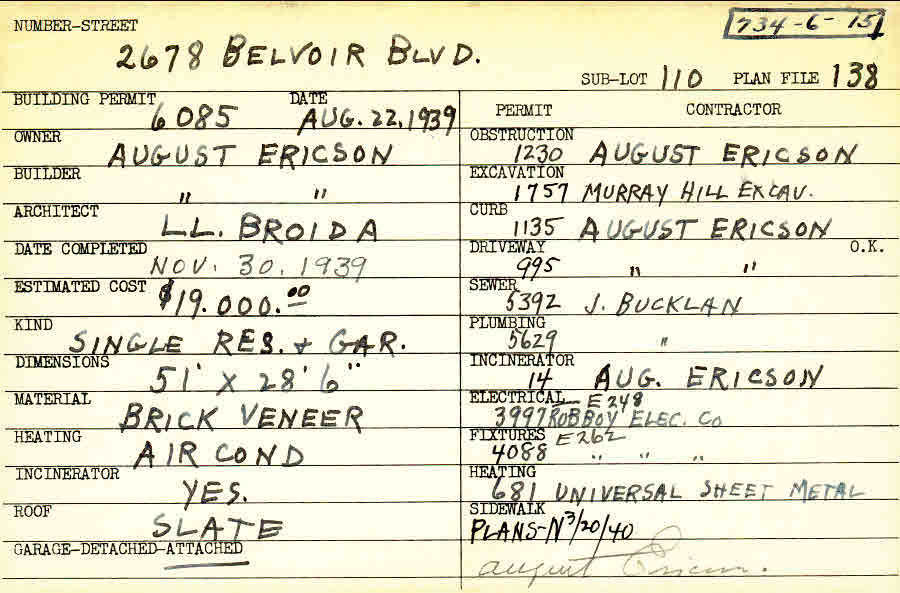 NUMBER-STREET
734-6-15
2678 BELVOIR BLVD.
SUB-LOT 110 PLAN FILE 138
BUILDING PERMIT DATE
6085 AUG. 22, 1939
OWNER
AUGUST ERICSON
BUILDER
" "
ARCHITECT
L.L. BROIDA
DATE COMPLETED
NOV. 30, 1939
ESTIMATED COST
$19.000.00
KIND
SINGLE RES. + GAR.
DIMENSIONS
51' X 28' 6"
MATERIAL
BRICK VENEER
HEATING
AIR COND
INCINERATOR
YES.
ROOF
SLATE
GARAGE-DETACHED-ATTACHED
PERMIT CONTRACTOR
OBSTRUCTION
1230 AUGUST ERICSON
EXCAVATION
1757 MURRAY HILL EXCAV.
CURB
1135 AUGUST ERICSON
DRIVEWAY O.K.
995 " "
SEWER
5392 J. BUCKLAN
PLUMBING
5629 "
INCINERATOR
14 AUG. ERICSON
ELECTRICAL E248
3997 ROBBOY ELEC. CO
FIXTURES E262
4088 " " "
HEATING
681 UNIVERSAL SHEET METAL
SIDEWALK
PLANS-N 3/20/40
August Ericson.